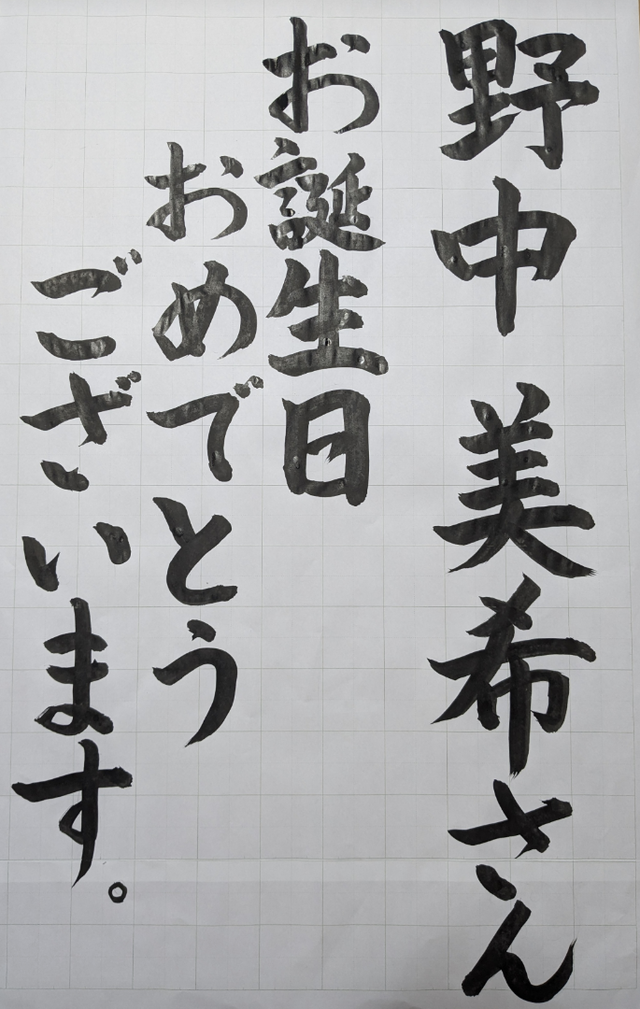 野中 美希さん
お誕生日
おめでとう
ございます。